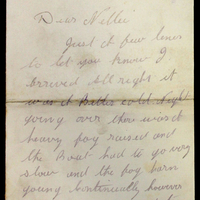 Dear Nellie
Just a few lines
to let you know I
arrived all right it
was a Bitter cold Night
going over there was a
heavy fog raised and
the Boat had to go very
slow and the fog horn
going continually however